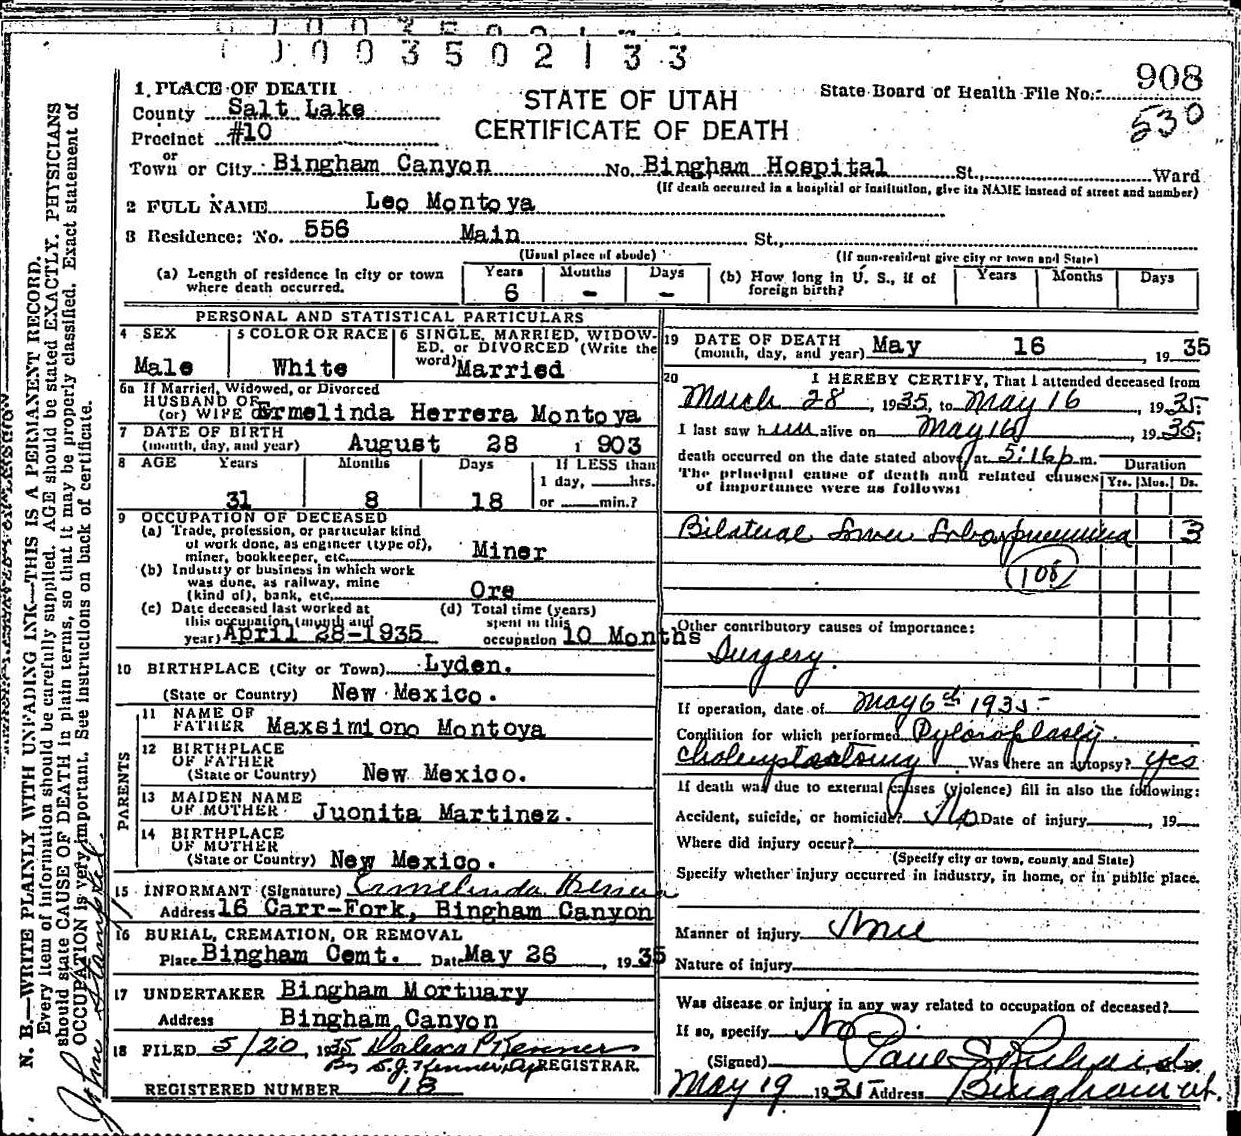 0003502133
908
530
1. PLACE OF DEATH
County Salt Lake
Precinct #10
STATE OF UTAH
CERTIFICATE OF DEATH
State Board of Health File No.
or
Town or City Bingham Canyon No. Bingham Hospital St., Ward
(If death occurred in a hospital or institution, give its NAME instead of street and number)
2 FULL NAME Leo Montoya
3 Residence: No. 556 Main St.,
(Usual place of abode) (If non-resident give city or town and State)
(a) Length of residence in city or town where death occurred. Years 6 Months - Days -
(b) How long in U. S., if of foreign birth? Years Months Days
PERSONAL AND STATISTICAL PARTICULARS
4 SEX Male
5 COLOR OR RACE White
6 SINGLE, MARRIED, WIDOWED, or DIVORCED (Write the word) Married
6a If Married, Widowed, or Divorced
HUSBAND OF
(or) WIFE OF Ermelinda Herrera Montoya
7 DATE OF BIRTH
(month, day, and year) August 28 1903
8 AGE Years 31 Months 8 Days 18 If LESS than 1 day, hrs. or min.?
9 OCCUPATION OF DECEASED
(a) Trade, profession, or particular kind of work done, as engineer (type of), miner, bookkeeper, etc. Miner
(b) Industry or business in which work was done, as railway, mine (kind of), bank, etc. Ore
(c) Date deceased last worked at this occupation (month and year) April 28-1935
(d) Total time (years) spent in this occupation 10 Months
10 BIRTHPLACE (City or Town) Lyden.
(State or Country) New Mexico.
PARENTS
11 NAME OF FATHER Maxsimiono Montoya
12 BIRTHPLACE OF FATHER
(State or Country) New Mexico.
13 MAIDEN NAME OF MOTHER Juonita Martinez.
14 BIRTHPLACE OF MOTHER
(State or Country) New Mexico.
15 INFORMANT (Signature) Ermelinda Herrera
Address 16 Carr-Fork, Bingham Canyon
16 BURIAL, CREMATION, OR REMOVAL
Place Bingham Cemt. Date May 26, 1935
17 UNDERTAKER Bingham Mortuary
Address Bingham Canyon
18 FILED 5/20, 1935
REGISTRAR.
REGISTERED NUMBER 18
19 DATE OF DEATH
(month, day, and year) May 16, 1935
20 I HEREBY CERTIFY, That I attended deceased from
March 28, 1935, to May 16, 1935;
I last saw him alive on May 16, 1935;
death occurred on the date stated above, at 5:16 p.m.
The principal cause of death and related causes of importance were as follows:
Duration
Yrs. Mos. Ds.
Bilateral Lower Lobar pneumonia 3
108
Other contributory causes of importance:
Surgery.
If operation, date of May 6th 1935
Condition for which performed Pyloroplasty.
Was there an autopsy? yes
If death was due to external causes (violence) fill in also the following:
Accident, suicide, or homicide? No Date of injury, 19
Where did injury occur?
(Specify city or town, county and State)
Specify whether injury occurred in industry, in home, or in public place.
Manner of injury
Nature of injury
Was disease or injury in any way related to occupation of deceased?
If so, specify No
(Signed) Paul S Richards
May 19 1935 Address Bingham Ut.
N. B.—WRITE PLAINLY WITH UNFADING INK—THIS IS A PERMANENT RECORD.
Every item of information should be carefully supplied. AGE should be stated EXACTLY. PHYSICIANS
should state CAUSE OF DEATH in plain terms, so that it may be properly classified. Exact statement of
OCCUPATION is very important. See instructions on back of certificate.